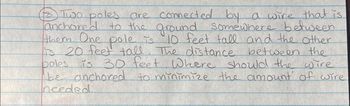 ② Two poles are connected by a wire that is
anchored to the ground somewhere between
them. One pole is 10 feet tall and the other
is 20 feet tall. The distance between the
poles is 30 feet. Where should the wire
be anchored to minimize the amount of wire
needed.